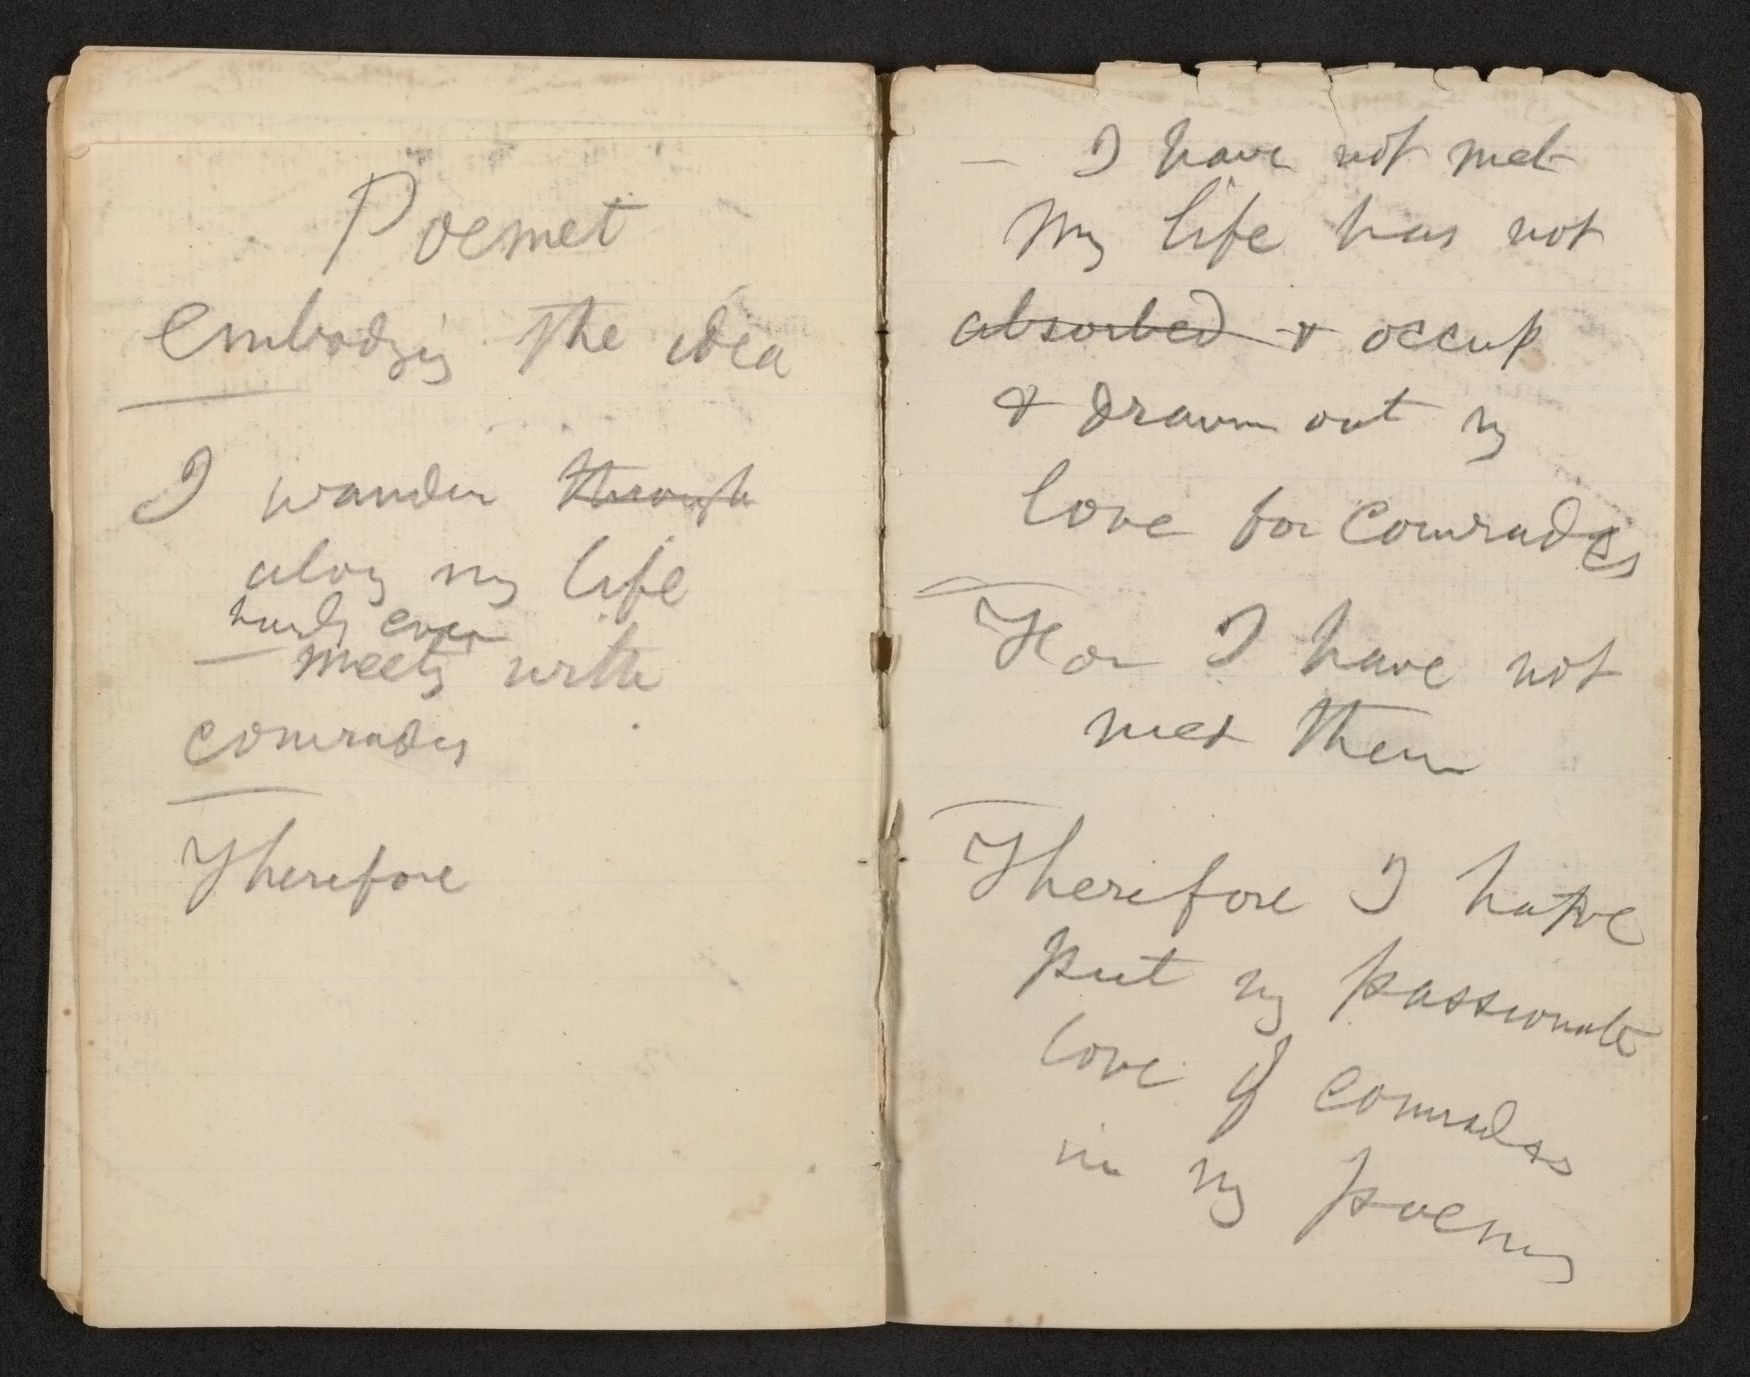 Poemet
embodying the idea
I wander through
along my life
hardly ever
— meeting with
comrades
Therefore
— I have not met
My life has not
absorbed & occup
& drawn out my
love for comrades
For I have not
met them
Therefore I have
put my passionate
love of comrades
in my poems